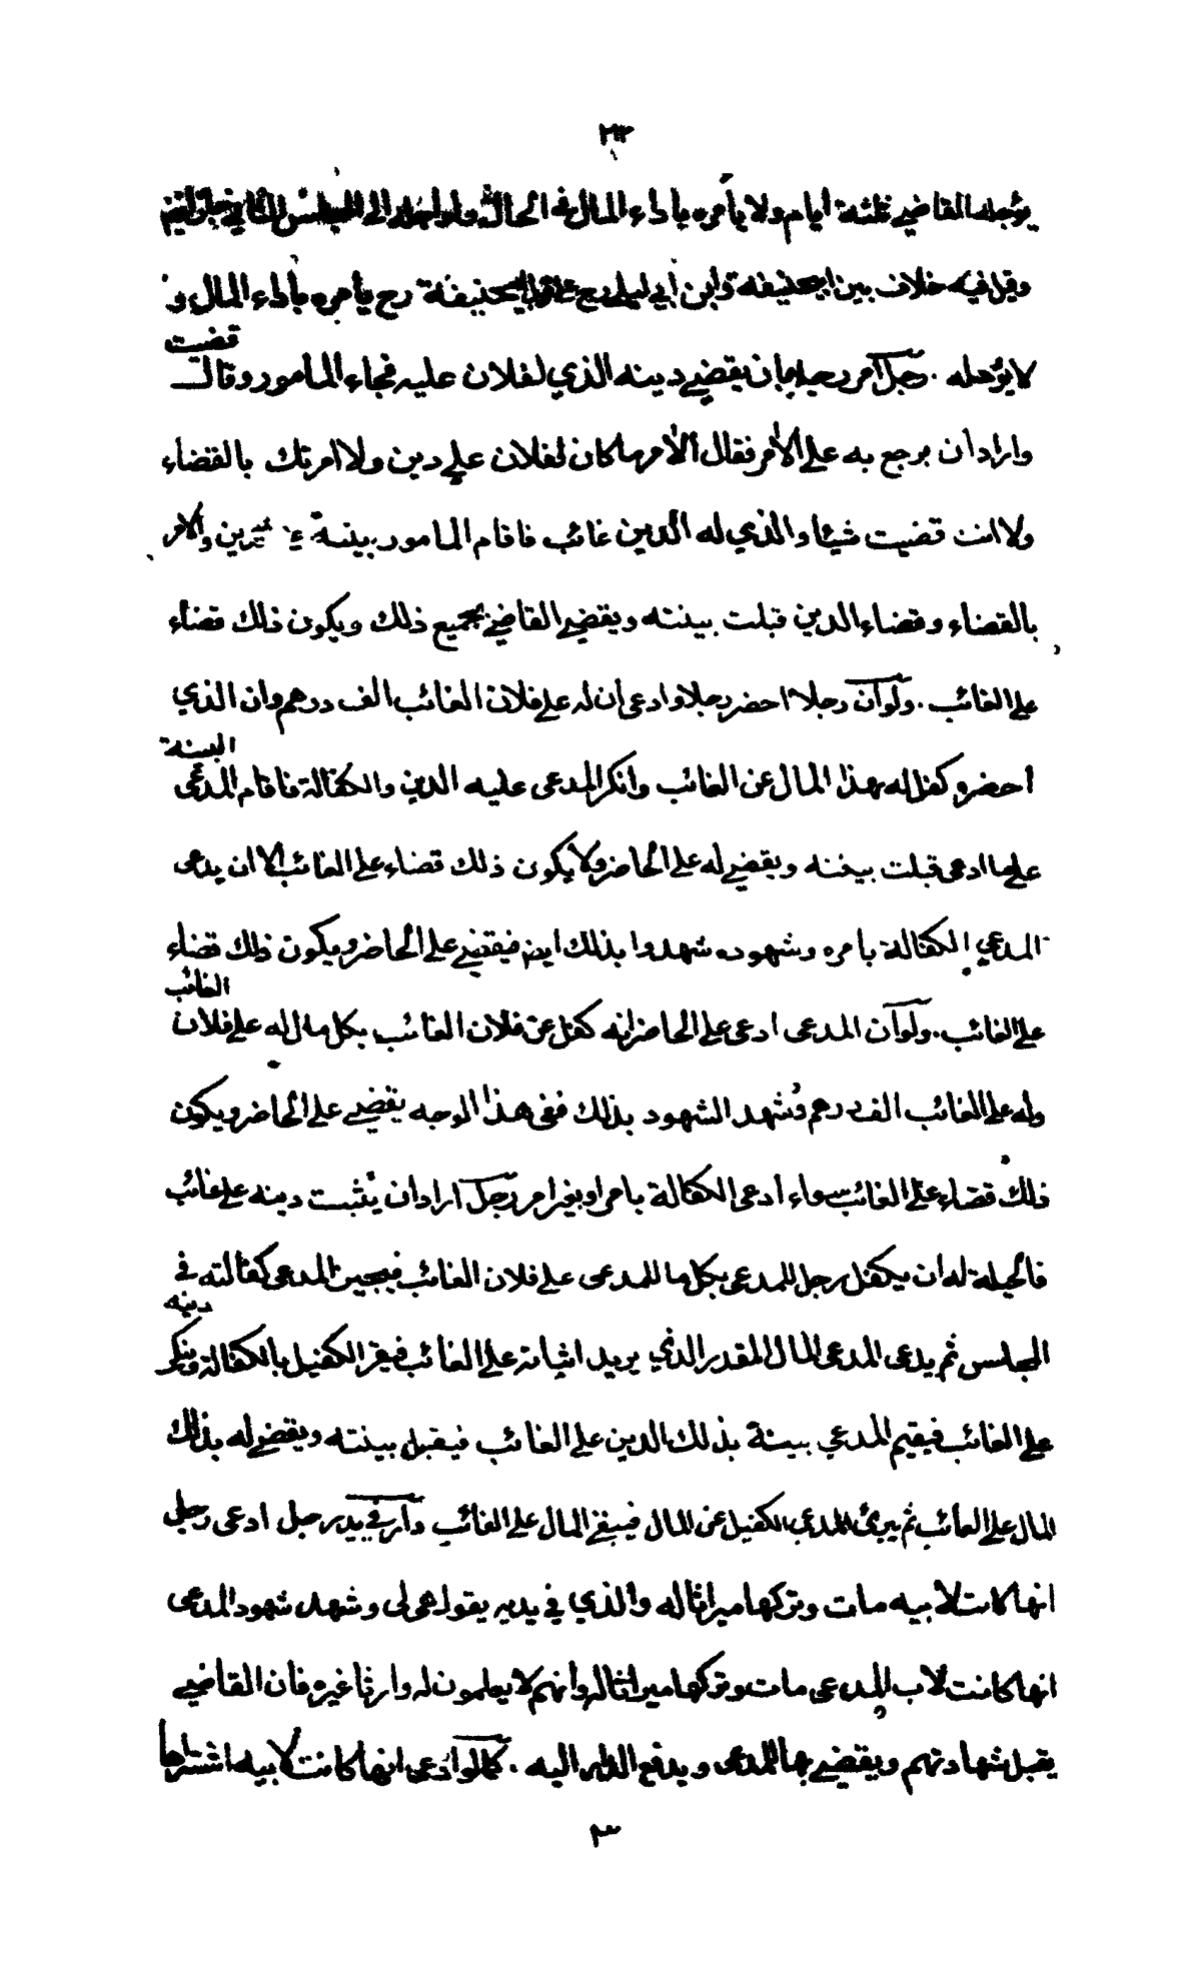 ٢٣
يؤجله القاضي ثلثة ايام ولا يأمره باداء المال في الحال ولو اجله الى المجلس الثاني جاز
وقيل فيه خلاف بين ابيحنيفة وابن ابي ليلى رح ابيحنيفة رح يأمره بأداء المال و
لا يؤجله . رجل امر رجلا بان يقضي دينه الذي لفلان عليه فجاء المأمور وقال قضيت
واراد ان يرجع به على الآمر فقال الآمر ما كان لفلان علي دين ولا امرتك بالقضاء
ولا انت قضيت شيئا والذي له الدين غائب فاقام المامور بينة والامر
بالقضاء وقضاء الدين قبلت بينته ويقضي القاضي بجميع ذلك ويكون ذلك قضاء
على الغائب . ولو ان رجلا احضر رجلا وادعى ان له على فلان الغائب الف درهم وان الذي
احضره كفل له بهذا المال عن الغائب وانكر المدعى عليه الدين والكفالة فاقام المدعي البينة
على ما ادعى قبلت بينته ويقضي له على الحاضر ولا يكون ذلك قضاء على الغائب الا ان يدعى
المدعي الكفالة بامره وشهوده شهدوا بذلك ايضا فيقضي على الحاضر ويكون ذلك قضاء
على الغائب . ولو ان المدعى ادعى على الحاضر انه كفل عن فلان الغائب بكل مال له على فلان الغائب
وله على الغائب الف درهم وشهد الشهود بذلك ففى هذا الوجه يقضي على الحاضر ويكون
ذلك قضاء على الغائب سواء ادعى الكفالة بامر او بغير امر رجل اراد ان يثبت دينه على غائب
فالحيلة له ان يكفل رجل للمدعى بكل ما للمدعى على فلان الغائب فيجيز المدعى كفالته في
المجلس ثم يدعى المدعى المال المقدر الذي يريد اثباته على الغائب فيقر الكفيل بالكفالة وينكر دينه
على الغائب فيقيم المدعي بينة بذلك الدين على الغائب فيقبل بينته ويقضى له بذلك
المال على الغائب ثم يبرئ المدعي الكفيل عن المال فيبقى المال على الغائب دار في يد رجل ادعى رجل
انها كانت لابيه مات وتركها ميراثا له والذي في يديه يقول هى لى وشهد شهود المدعى
انها كانت لاب المدعى مات وتركها ميراثا له وانهم لا يعلمون له وارثا غيره فان القاضي
يقبل شهادتهم ويقضي بها للمدعى ويدفع الدار اليه . كما لو ادعى انها كانت لابيه اشتراها